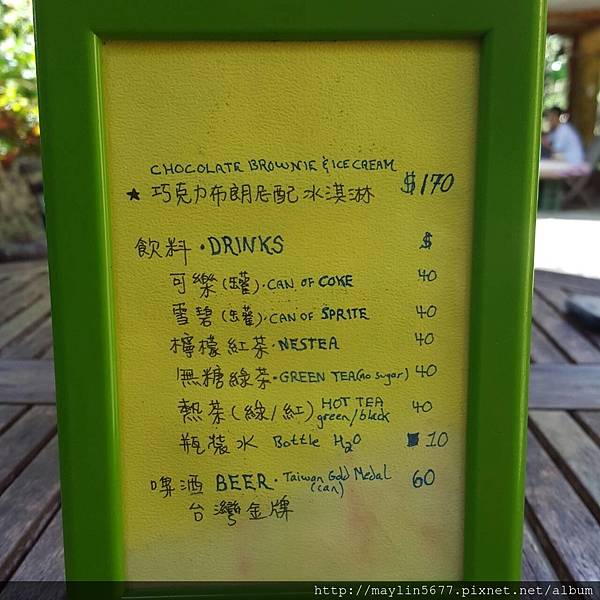 CHOCOLATE BROWNIE & ICE CREAM
★ 巧克力布朗尼配冰淇淋 $170
飲料・DRINKS $
可樂(罐)・CAN OF COKE 40
雪碧(罐)・CAN OF SPRITE 40
檸檬紅茶・NESTEA 40
無糖綠茶・GREEN TEA (no sugar) 40
熱茶(綠/紅) HOT TEA green/black 40
瓶裝水 Bottle H2O 10
啤酒 BEER・Taiwan Gold Medal (can) 60
台灣金牌
http://maylin5677.pixnet.net/album